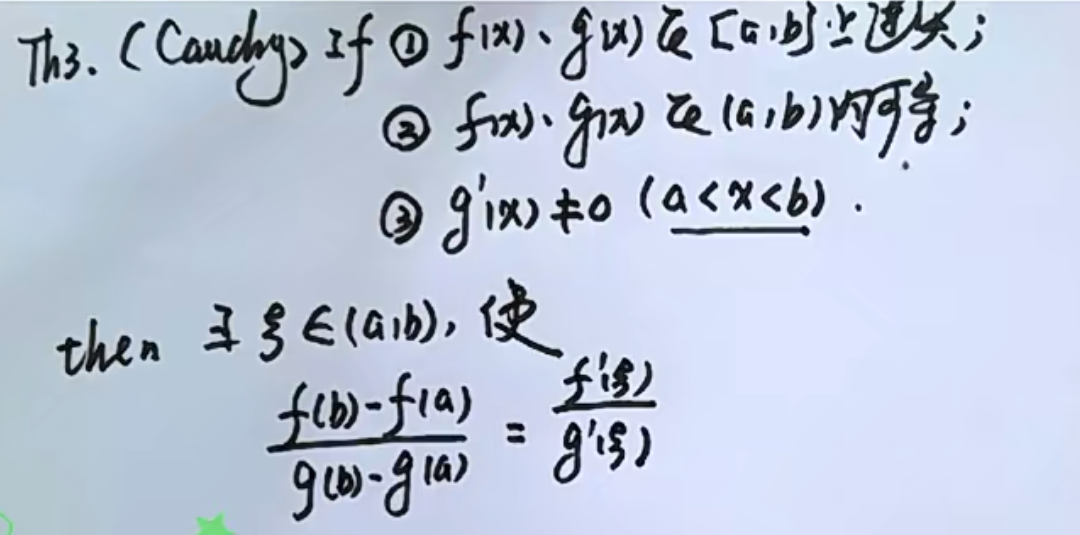 Th3. (Cauchy) If ① f(x)、g(x) 在 [a,b] 上连续;
② f(x)、g(x) 在 (a,b) 内可导;
③ g'(x) ≠ 0 (a<x<b).
then ∃ ξ ∈ (a,b), 使
f(b)-f(a) / g(b)-g(a) = f'(ξ) / g'(ξ)